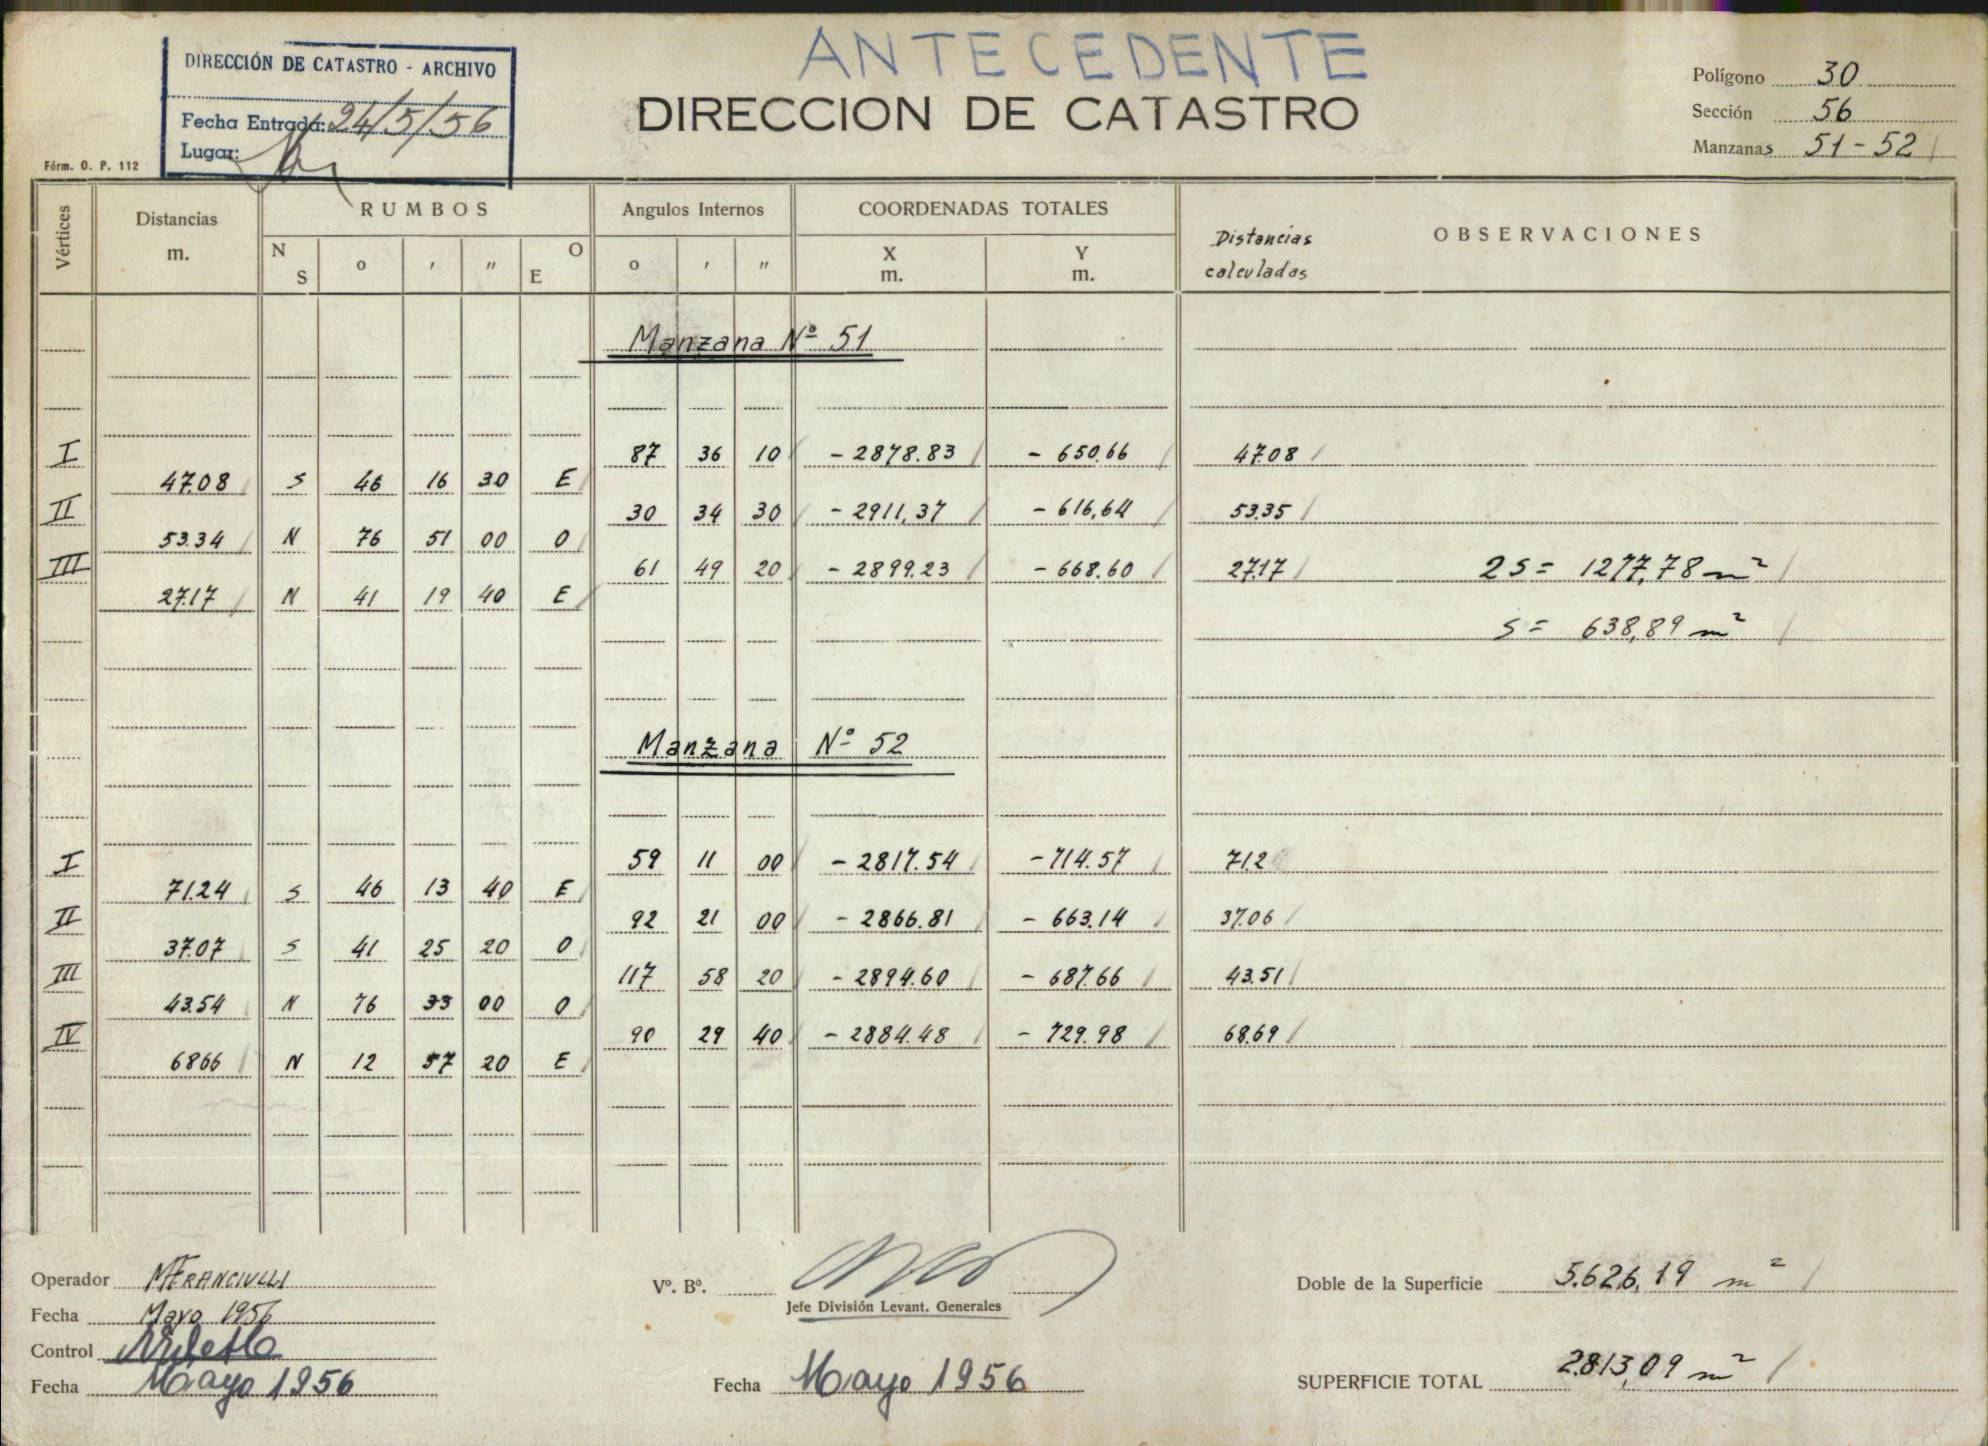 ANTECEDENTE
DIRECCIÓN DE CATASTRO - ARCHIVO
Fecha Entrada: 24/5/56
Lugar:
DIRECCION DE CATASTRO
Polígono 30
Sección 56
Manzanas 51-52
Fórm. O. P. 112
Vértices Distancias m. RUMBOS N S o , " O E Angulos Internos o , " COORDENADAS TOTALES X m. Y m. Distancias calculadas OBSERVACIONES
Manzana Nº 51
I 87 36 10 - 2878.83 - 650.66 47.08
47.08 S 46 16 30 E
II 30 34 30 - 2911,37 - 616,64 53.35
53.34 N 76 51 00 O
III 61 49 20 - 2899.23 - 668.60 27.17 2S = 1277,78 m²
27.17 N 41 19 40 E
S = 638,89 m²
Manzana Nº 52
I 59 11 00 - 2817.54 - 714.57 71.2
71.24 S 46 13 40 E
II 92 21 00 - 2866.81 - 663.14 37.06
37.07 S 41 25 20 O
III 117 58 20 - 2894.60 - 687.66 43.51
43.54 N 76 33 00 O
IV 90 29 40 - 2884.48 - 729.98 68.69
68 66 N 12 57 20 E
Operador M FRANCIULLI
Fecha Mayo 1956
Control
Fecha Mayo 1956
Vº. Bº.
Jefe División Levant. Generales
Fecha Mayo 1956
Doble de la Superficie 5.626,19 m²
SUPERFICIE TOTAL 2.813,09 m²